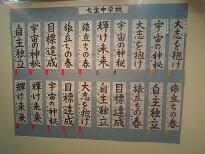 七生中学校
大志を抱け
宇宙の神秘
大志を抱け
宇宙の神秘
輝け未来
旅立ちの春
目標達成
宇宙の神秘
自主独立
旅立ちの春
自主独立
旅立ちの春
目標達成
大志を抱け
目標達成
宇宙の神秘
輝け未来
輝け未来